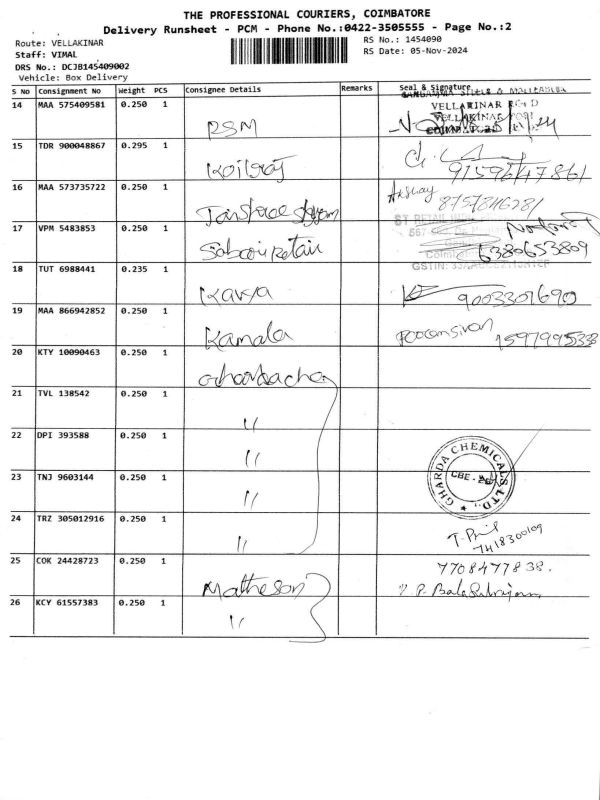 THE PROFESSIONAL COURIERS, COIMBATORE
Delivery Runsheet - PCM - Phone No.:0422-3505555 - Page No.:2
Route: VELLAKINAR
RS No.: 1454090
Staff: VIMAL
RS Date: 05-Nov-2024
DRS No.: DCJB145409002
Vehicle: Box Delivery
S No Consignment No Weight PCS Consignee Details Remarks Seal & Signature
14 MAA 575409581 0.250 1
VELLAKINAR
VELLAKINAR POST
RSM
15 TDR 900048867 0.295 1
Koilraj
9159647861
16 MAA 573735722 0.250 1
Akshay
8757846281
17 VPM 5483853 0.250 1
ST RETAIL
6380653809
GSTIN:
18 TUT 6988441 0.235 1
Kavya 9003301690
19 MAA 866942852 0.250 1
Kamala
1597995338
20 KTY 10090463 0.250 1
21 TVL 138542 0.250 1
"
22 DPI 393588 0.250 1
"
GHARDA CHEMICALS LTD.
CBE
23 TNJ 9603144 0.250 1
"
24 TRZ 305012916 0.250 1
"
7418300109
25 COK 24428723 0.250 1
7708477838.
Matheson
26 KCY 61557383 0.250 1
"